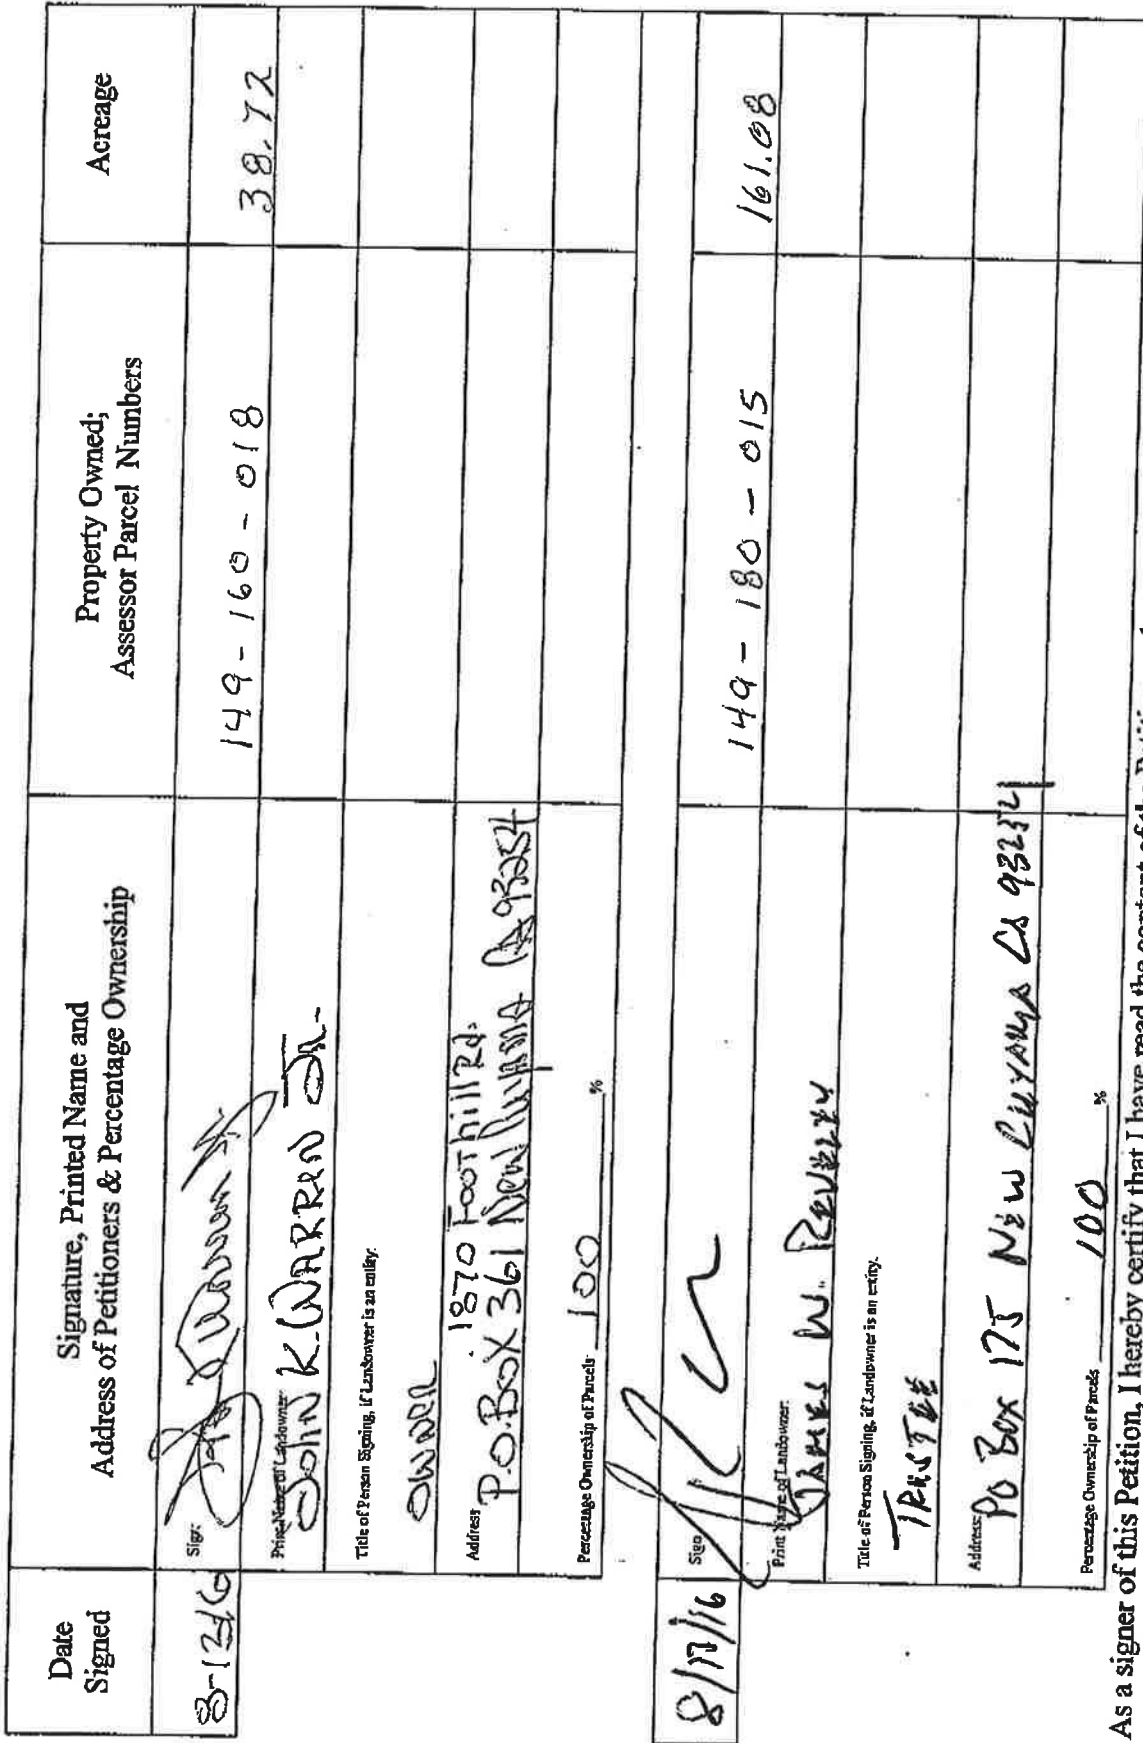 Date Signed
Signature, Printed Name and Address of Petitioners & Percentage Ownership
Property Owned; Assessor Parcel Numbers
Acreage
Sign:
149-160-018
38.72
Print Name of Landowner:
John K. WARREN JR.
Title of Person Signing, if Landowner is an entity:
OWNER
1870 Foothill Rd.
Address: P.O. BOX 361 New Cuyama CA 93254
Percentage Ownership of Parcels 100 %
8/17/16
Sign
149-180-015
161.08
Print Name of Landowner:
JAMES W.
Title of Person Signing, if Landowner is an entity.
TRUSTEE
Address: PO BOX 175 NEW CUYAMA CA 93254
Percentage Ownership of Parcels 100 %
As a signer of this Petition, I hereby certify that I have read the content of the Petition